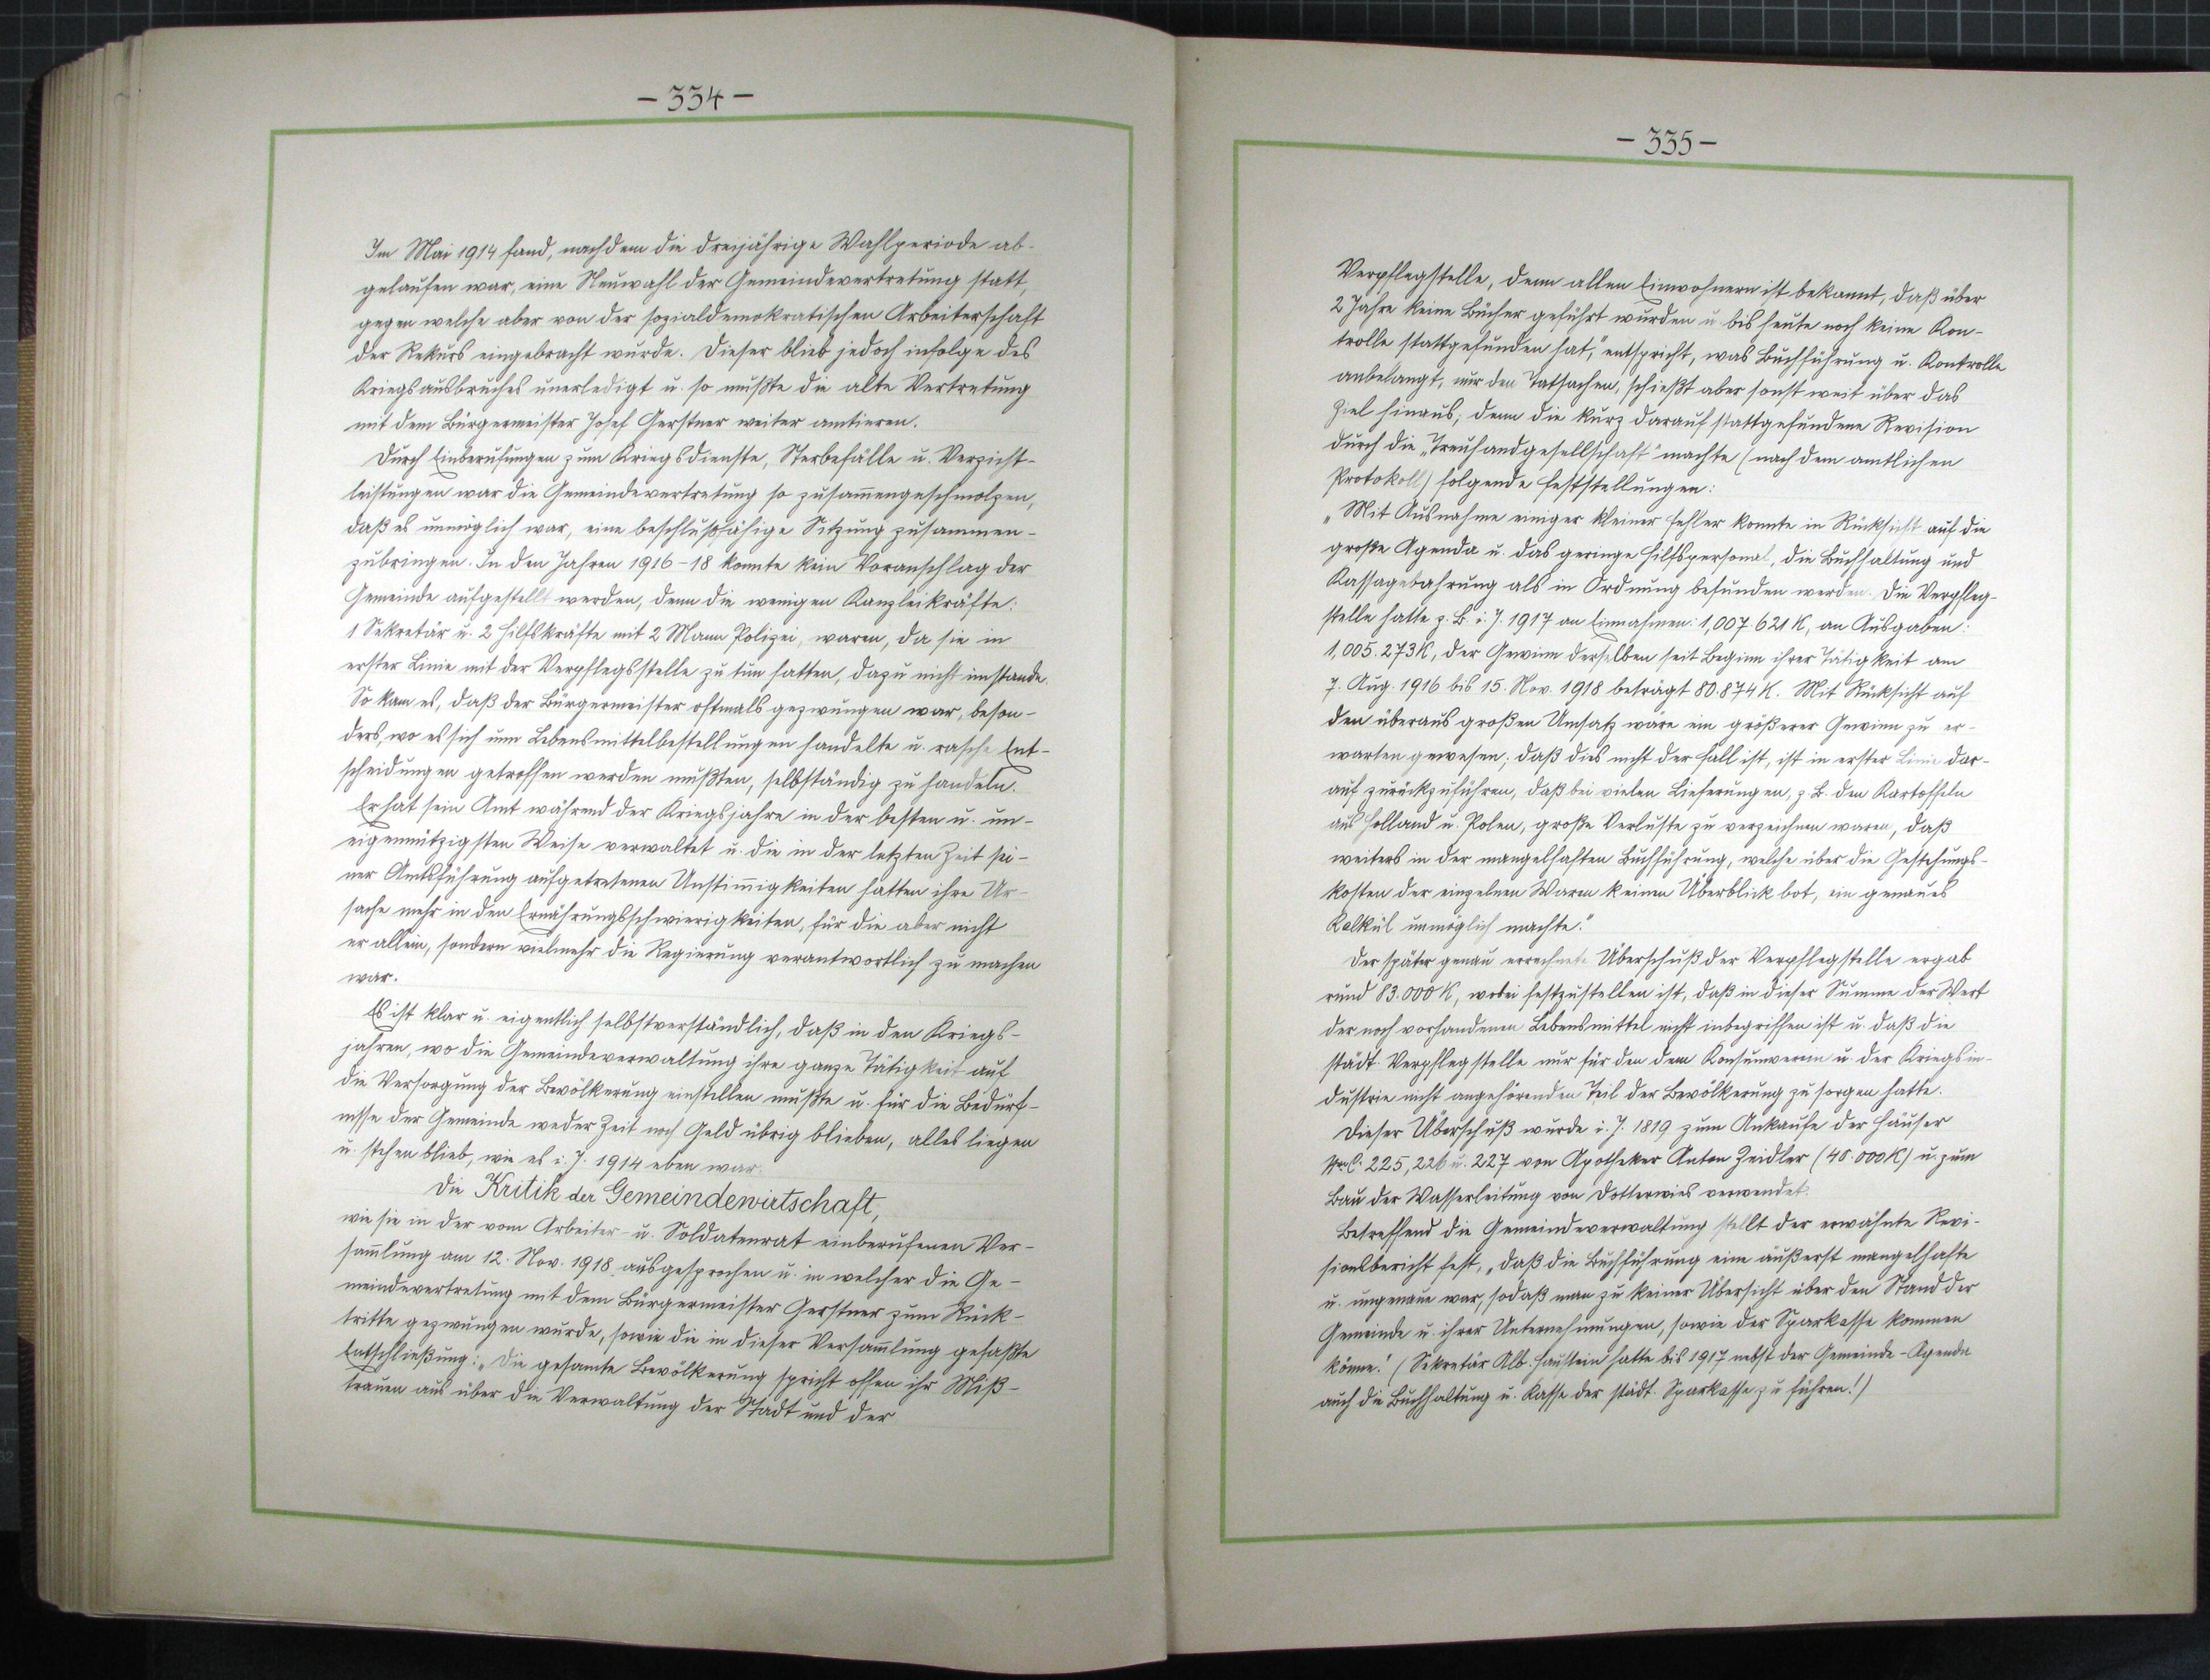 - 334 -
Im Mai 1914 fand, nachdem die dreijährige Wahlperiode ab-
gelaufen war, eine Neuwahl der Gemeindevertretung statt,
gegen welche aber von der sozialdemokratischen Arbeiterschaft
der Rekurs eingebracht wurde. Dieser blieb jedoch infolge des
Kriegsausbruches unerledigt u. so mußte die alte Vertretung
mit dem Bürgermeister Josef Gerstner weiter amtieren.
Durch Einberufungen zum Kriegsdienste, Sterbefälle u. Verzicht-
leistungen war die Gemeindevertretung so zusam̄engeschmolzen,
daß es unmöglich war, eine beschlußfähige Sitzung zusammen-
zubringen. In den Jahren 1916-18 konnte kein Voranschlag der
Gemeinde aufgestellt werden, denn die wenigen Kanzleikräfte:
1 Sekretär u. 2 Hilfskräfte mit 2 Mann Polizei, waren, da sie in
erster Linie mit der Verpflegsstelle zu tun hatten, dazu nicht imstande.
So kam es, daß der Bürgermeister oftmals gezwungen war, beson-
ders, wo es sich um Lebensmittelbestellungen handelte u. rasche Ent-
scheidungen getroffen werden mußten, selbständig zu handeln.
Er hat sein Amt während der Kriegsjahre in der besten u. un-
eigennützigsten Weise verwaltet u. die in der letzten Zeit sei-
ner Amtsführung aufgetretenen Unstim̄igkeiten hatten ihre Ur-
sache mehr in den Ernährungsschwierigkeiten, für die aber nicht
er allein, sondern vielmehr die Regierung verantwortlich zu machen
war.
Es ist klar u. eigentlich selbstverständlich, daß in den Kriegs-
jahren, wo die Gemeindeverwaltung ihre ganze Tätigkeit auf
die Versorgung der Bevölkerung einstellen mußte u. für die Bedürf-
nisse der Gemeinde weder Zeit noch Geld übrig blieben, alles liegen
u. stehen blieb, wie es i. J. 1914 eben war.
Die Kritik der Gemeindewirtschaft,
wie sie in der vom Arbeiter- u. Soldatenrat einberufenen Ver-
sam̄lung am 12. Nov. 1918 ausgesprochen u. in welcher die Ge-
meindevertretung mit dem Bürgermeister Gerstner zum Rück-
tritte gezwungen wurde, sowie die in dieser Versam̄lung gefaßte
Entschließung: „Die gesamte Bevölkerung spricht offen ihr Miß-
trauen aus über die Verwaltung der Stadt und der
- 335 -
Verpflegstelle, denn allen Einwohnern ist bekannt, daß über
2 Jahre keine Bücher geführt wurden u. bis heute noch keine Kon-
trolle stattgefunden hat," entspricht, was Buchführung u. Kontrolle
anbelangt, nur den Tatsachen, schießt aber sonst weit über das
Ziel hinaus; denn die kurz darauf stattgefundene Revision
durch die „Treuhandgesellschaft" machte (nach dem amtlichen
Protokoll) folgende Feststellungen:
„Mit Ausnahme einiger kleiner Fehler konnte in Rücksicht auf die
große Agenda u. das geringe Hilfspersonal, die Buchhaltung und
Kassagebahrung als in Ordnung befunden werden. Die Verpfleg-
stelle hatte z. B. i. J. 1917 an Einnahmen: 1,007.621 K, an Ausgaben:
1,005.273 K, der Gewinn derselben seit Beginn ihrer Tätigkeit am
7. Aug. 1916 bis 15. Nov. 1918 beträgt 80.874 K. Mit Rücksicht auf
den überaus großen Umsatz wäre ein größerer Gewinn zu er-
warten gewesen; daß dies nicht der Fall ist, ist in erster Linie dar-
auf zurückzuführen, daß bei vielen Lieferungen, z. B. den Kartoffeln
aus Holland u. Polen, große Verluste zu verzeichnen waren, daß
weiters in der mangelhaften Buchführung, welche über die Gestehungs-
kosten der einzelnen Waren keinen Überblick bot, ein genaues
Kalkül unmöglich machte."
Der später genau errechnete Überschuß der Verpflegstelle ergab
rund 83.000 K, wobei festzustellen ist, daß in dieser Summe der Wert
der noch vorhandenen Lebensmittel nicht inbegriffen ist u. daß die
städt. Verpflegstelle nur für den dem Konsumverein u. der Kriegsin-
dustrie nicht angehörenden Teil der Bevölkerung zu sorgen hatte.
Dieser Überschuß wurde i. J. 1819 zum Ankaufe der Häuser
225, 226 u. 227 von Apotheker Anton Zeidler (48.000 K) u. zum
Bau der Wasserleitung von Dotterwies verwendet.
Betreffend die Gemeindeverwaltung stellt der erwähnte Revi-
sionsbericht fest, „daß die Buchführung eine äußerst mangelhafte
u. ungenaue war, sodaß man zu keiner Übersicht über den Stand der
Gemeinde u. ihrer Unternehmungen, sowie der Sparkasse kommen
könne." (Sekretär Alb. Haustein hatte bis 1917 nebst der Gemeinde-Agenda
auch die Buchhaltung u. Kasse der städt. Sparkasse zu führen!)